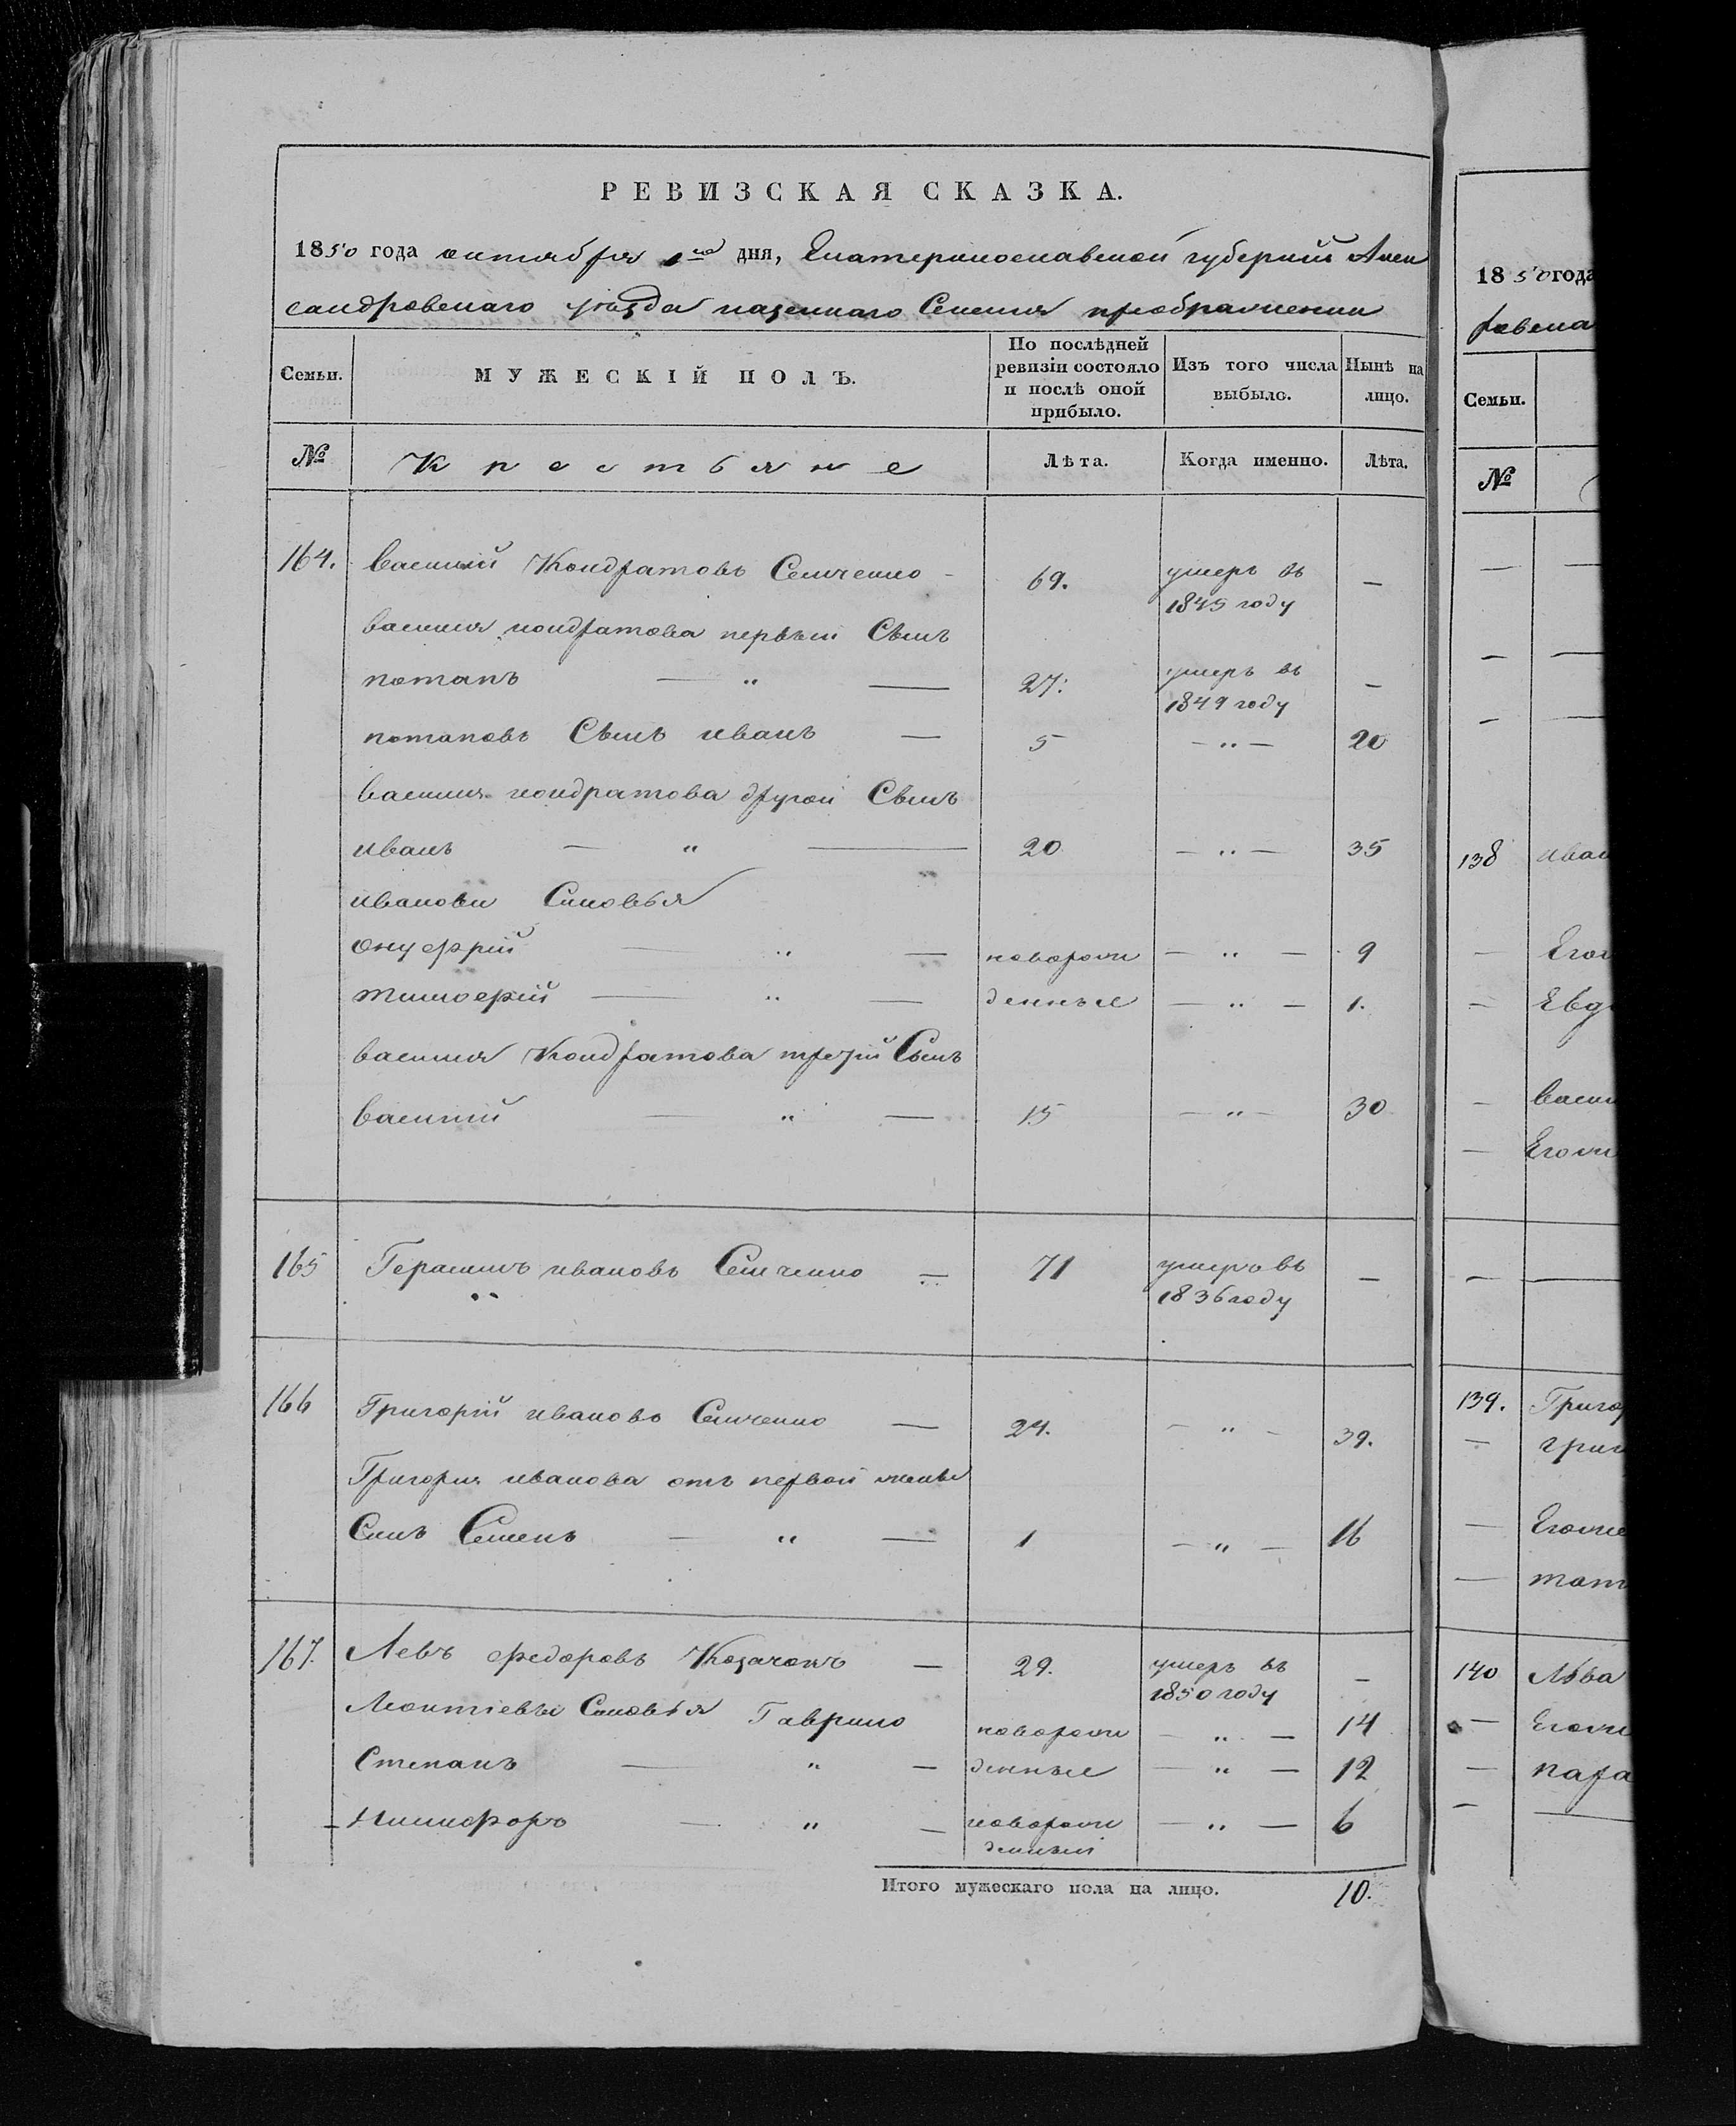 РЕВИЗСКАЯ СКАЗКА.
1850 года октября 1го дня, Екатеринославской губернии Алек
сандровскаго уѣзда казеннаго Селения преображенки
Семьи. МУЖЕСКІЙ ПОЛЪ. По послѣдней ревизіи состояло и послѣ оной прибыло. Изъ того числа выбыло. Нынѣ на лицо.
№ Крестьяне Лѣта. Когда именно. Лѣта.
164. василий Кондратовъ Семченко - 69. умеръ въ 1845 году —
василия кондратова первый Сынъ
потапъ — " — 27. умеръ въ 1849 году —
потаповъ Сынъ иванъ — 5 — " — 20
василия кондратова другой Сынъ
иванъ — " — 20 — " — 35
ивановы Сыновья
онуфрий — " — новорож — " — 9
тимофей — " — денные — " — 1.
василия Кондратова третий Сынъ
василий — " — 15 — " — 30
165 Герасимъ ивановъ Семченко — 71 умеръ въ 1836 году —
166 Григорій ивановъ Семченко — 24. — " — 39.
Григория иванова отъ первой жены
Синъ Семенъ — " — 1 — " — 16
167. Левъ федоровъ Козачокъ — 29. умеръ въ 1850 году —
Леонтіевы Сыновья Гаврило новорож — " — 14
Степанъ — " — денные — " — 12
Никифоръ — " — новорож денный — " — 6
Итого мужескаго пола на лицо. 10.
1850 года
ровска
Семьи.
№
138 иван
Его
Евд
васи
Егож
139. Григор
григ
Егож
тат
140 Льва
Егож
пара